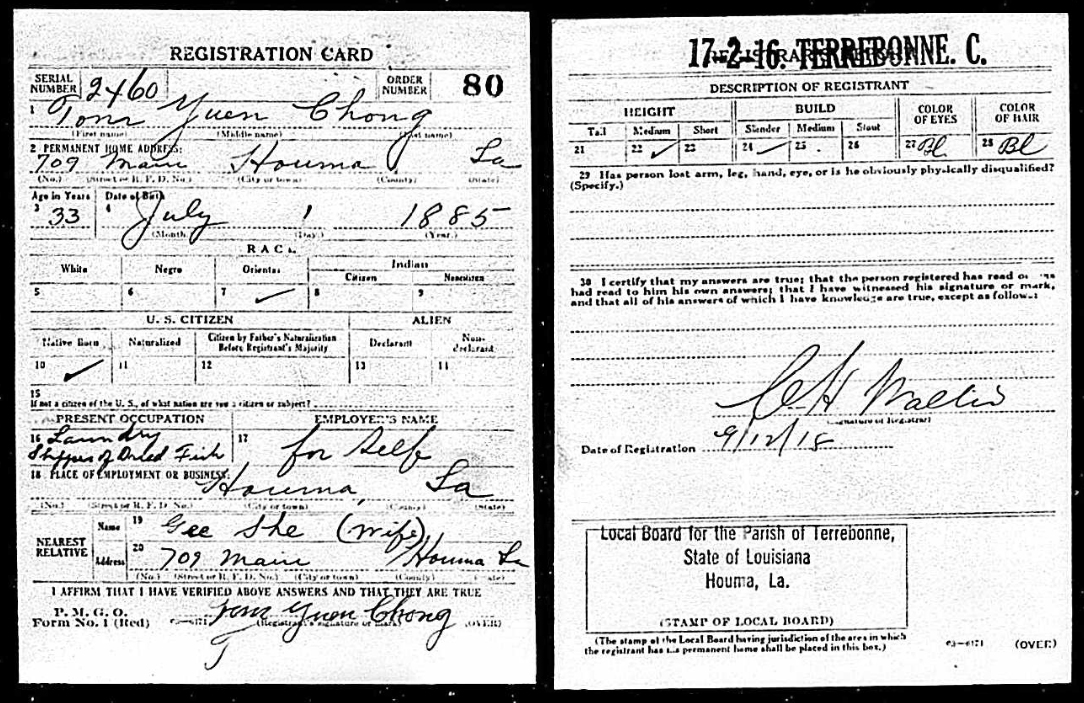 REGISTRATION CARD
SERIAL NUMBER 2460 ORDER NUMBER 80
1 Tom Yuen Chong
(First name) (Middle name) (Last name)
2 PERMANENT HOME ADDRESS:
709 Main Houma La
(No.) (Street or R. F. D. No.) (City or town) (County) (State)
Age in Years Date of Birth
3 33 4 July 1 1885
(Month.) (Day.) (Year.)
RACE
White Negro Oriental Indian
Citizen Noncitizen
5 6 7 ✓ 8 9
U. S. CITIZEN ALIEN
Native Born Naturalized Citizen by Father's Naturalization Before Registrant's Majority Declarant Non-declarant
10 ✓ 11 12 13 14
15
If not a citizen of the U. S., of what nation are you a citizen or subject?
PRESENT OCCUPATION EMPLOYER'S NAME
16 Laundry 17 for Self
Shipper of Dried Fish
18 PLACE OF EMPLOYMENT OR BUSINESS:
Houma, La
(No.) (Street or R. F. D. No.) (City or town) (County) (State)
NEAREST RELATIVE Name 19 Gee She (wife)
Address 20 709 Main Houma La
(No.) (Street or R. F. D. No.) (City or town) (County) (State)
I AFFIRM THAT I HAVE VERIFIED ABOVE ANSWERS AND THAT THEY ARE TRUE
P. M. G. O.
Form No. 1 (Red) Tom Yuen Chong
(Registrant's signature or mark) (OVER)
17-2-16. TERREBONNE. C.
DESCRIPTION OF REGISTRANT
HEIGHT BUILD COLOR OF EYES COLOR OF HAIR
Tall Medium Short Slender Medium Stout
21 22 ✓ 23 24 ✓ 25 26 27 Bl 28 Bl
29 Has person lost arm, leg, hand, eye, or is he obviously physically disqualified?
(Specify.)
30 I certify that my answers are true; that the person registered has read or has
had read to him his own answers; that I have witnessed his signature or mark,
and that all of his answers of which I have knowledge are true, except as follows:
(Signature of Registrar)
Date of Registration 9/12/18
Local Board for the Parish of Terrebonne,
State of Louisiana
Houma, La.
(STAMP OF LOCAL BOARD)
(The stamp of the Local Board having jurisdiction of the area in which
the registrant has his permanent home shall be placed in this box.)
(OVER)